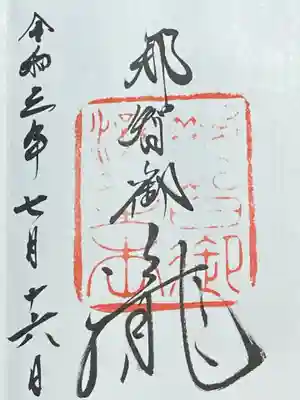 那智御瀧
令和三年七月十六日